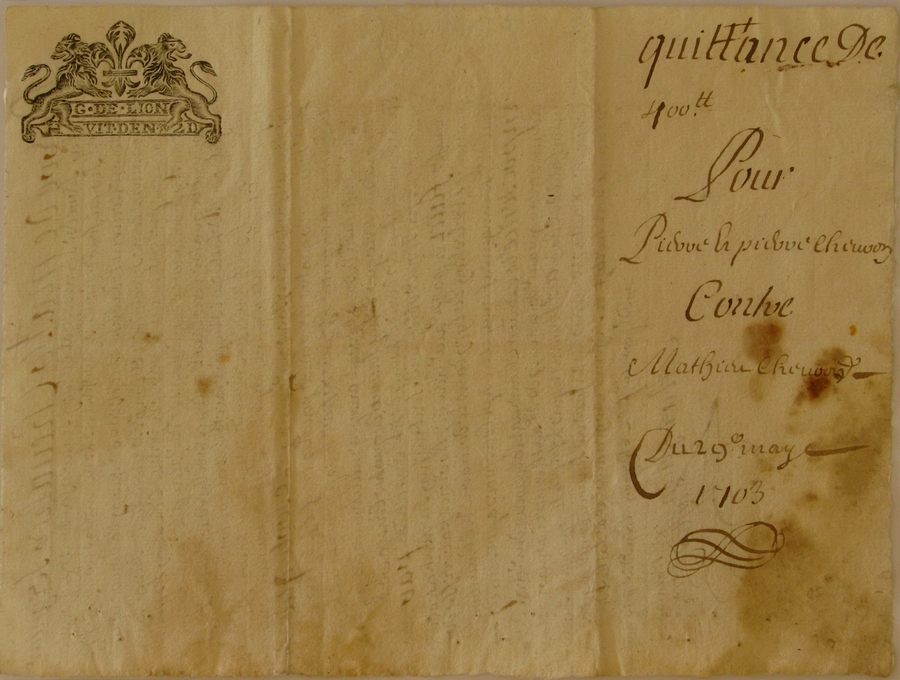 G·DE·LION
VIT·DEN· 2 D
quittance De
400.tt
Pour
Pierre & pierre Cherron
Contre
Mathieu Cherrond
Du 29e may
1703